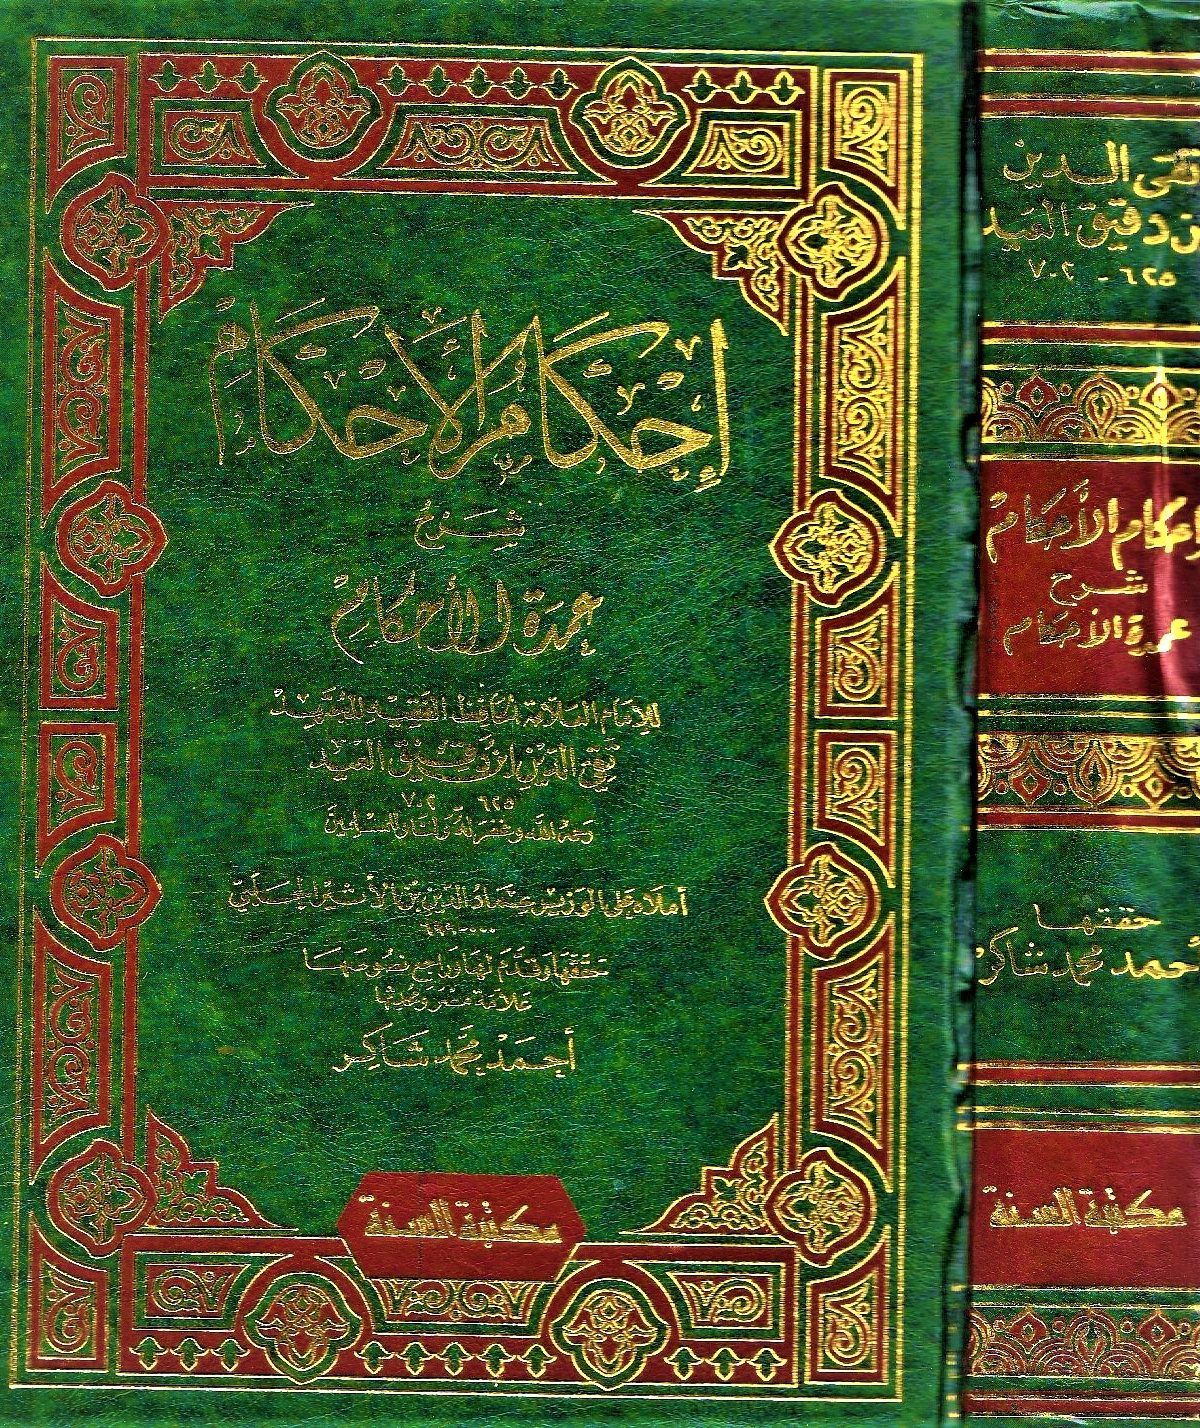 إِحْكَامُ الأَحْكَامِ
شَرْحُ
عُمْدَةِ الأَحْكَامِ
للإمام العلامة الحافظ الفقيه المجتهد
تقي الدين ابن دقيق العيد
٦٢٥ ٧٠٢
رحمه الله وغفر له ولنا وللمسلمين
أملاه على الوزير عماد الدين بن الأثير الحلبي
٠٠٠-٦٩٩
حققها وقدم لها وراجع نصوصها
علامة مصر ومحدثها
أحمد محمد شاكر
مكتبة السنة
تقى الدين
ابن دقيق العيد
٦٢٥ - ٧٠٢
إحكام الأحكام
شرح
عمدة الأحكام
حققها
أحمد محمد شاكر
مكتبة السنة